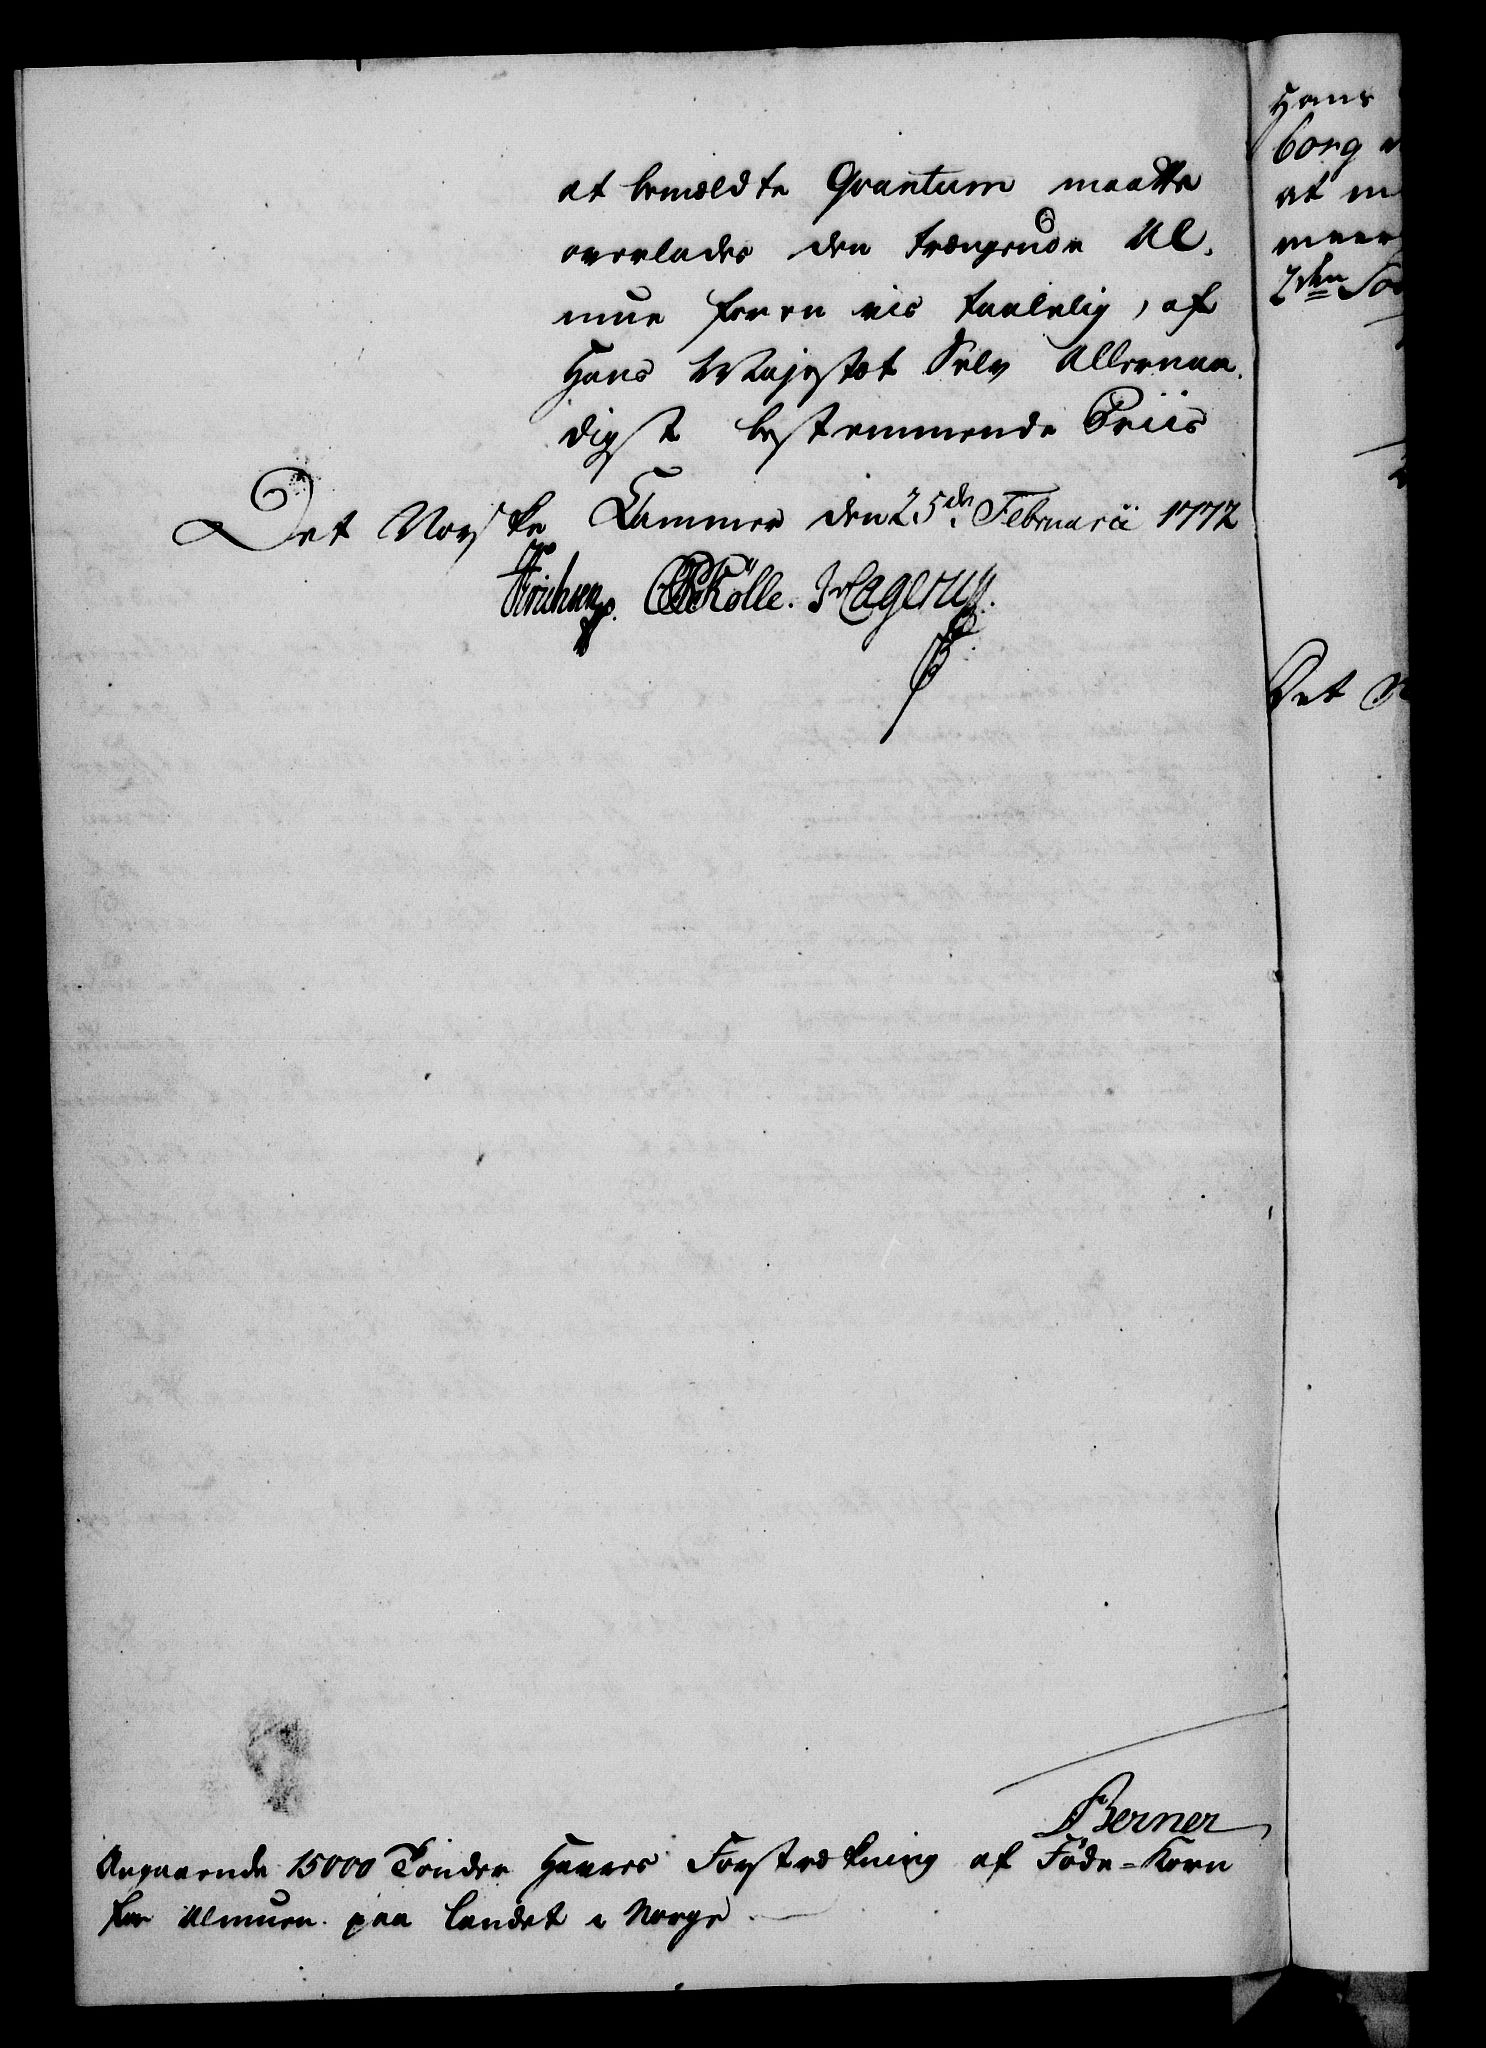 at bemældte Qvantum maatte
overlades den trængende Al,
mue for en vis taalelig, af
Hans Majestæt Selv Allernaa,
digst bestemmende Priis
Det Norske Kammer den 25de Februarii 1772
Erichsen. Kölle. Hagerup.
Berner
Angaaende 15000 Tönder Havres Forstrækning af Föde-Korn
for Almuen paa Landet i Norge
Hans
borg
at
meer
2den
Det